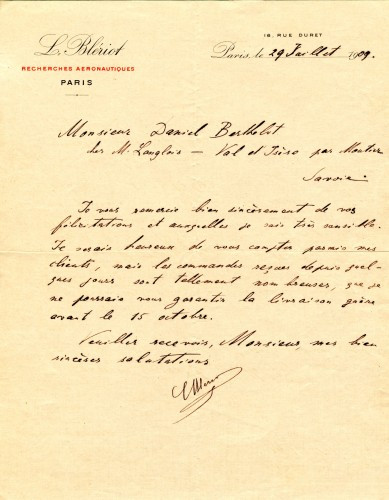 16, RUE DURET
L. Blériot
RECHERCHES AÉRONAUTIQUES
PARIS
Paris, le 29 Juillet 1909.
Monsieur Daniel Berthelot
chez M. Langlois — Val et Isère par Moutier
Savoie.
Je vous remercie bien sincèrement de vos
félicitations et auxquelles je suis très sensible.
Je serais heureux de vous compter parmis mes
clients, mais les commandes reçues depuis quel-
ques jours sont tellement nombreuses, que je
ne pourrais vous garantir la livraison guère
avant le 15 octobre.
Veuillez recevoir, Monsieur, mes bien
sincères salutations